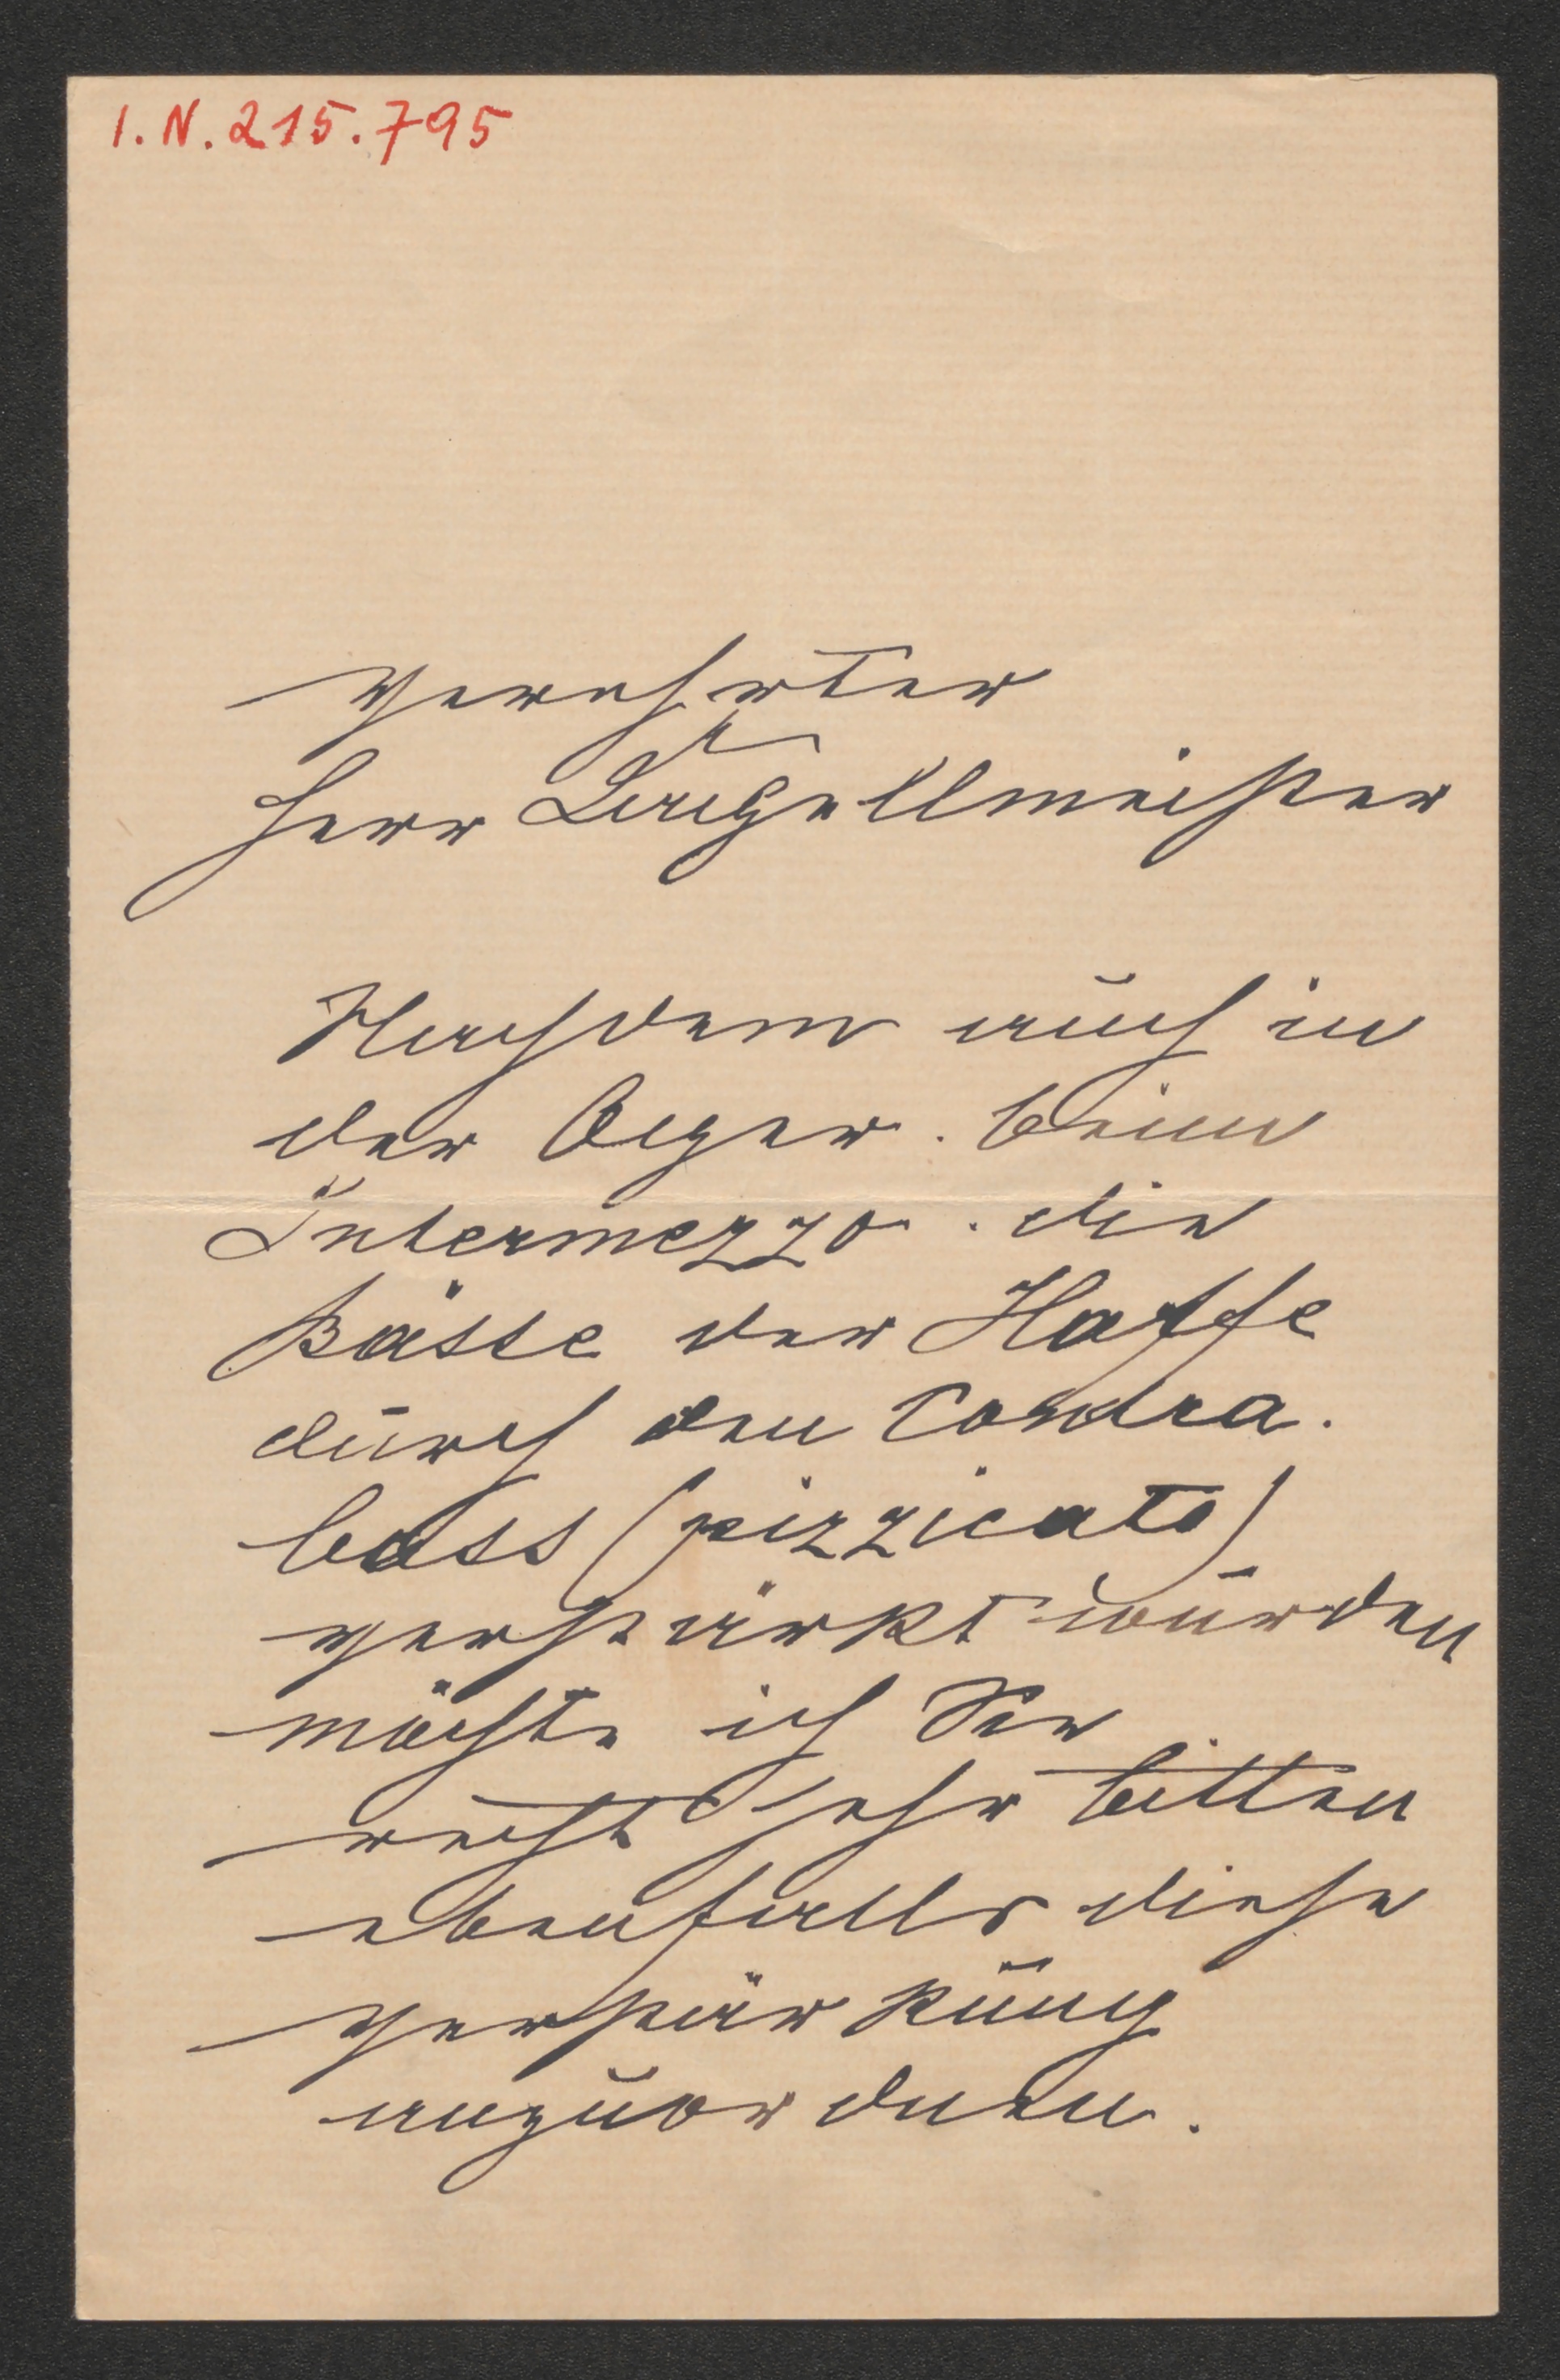 I. N. 215.795
Verehrter
Herr Kapellmeister
Nachdem auch in
der Oper. beim
Intermezzo. die
Bässe der Haffe
durch den Contra.
bass (pizzicato)
verstärkt wurden
möchte ich Sie
recht sehr bitten
ebenfalls diese
Verstärkung
anzuordnen.